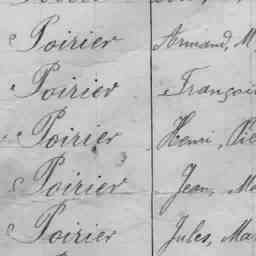 Poirier Armand, M
Poirier Françoi
Poirier Henri, Pie
Poirier Jean, Ma
Poirier Jules, Ma